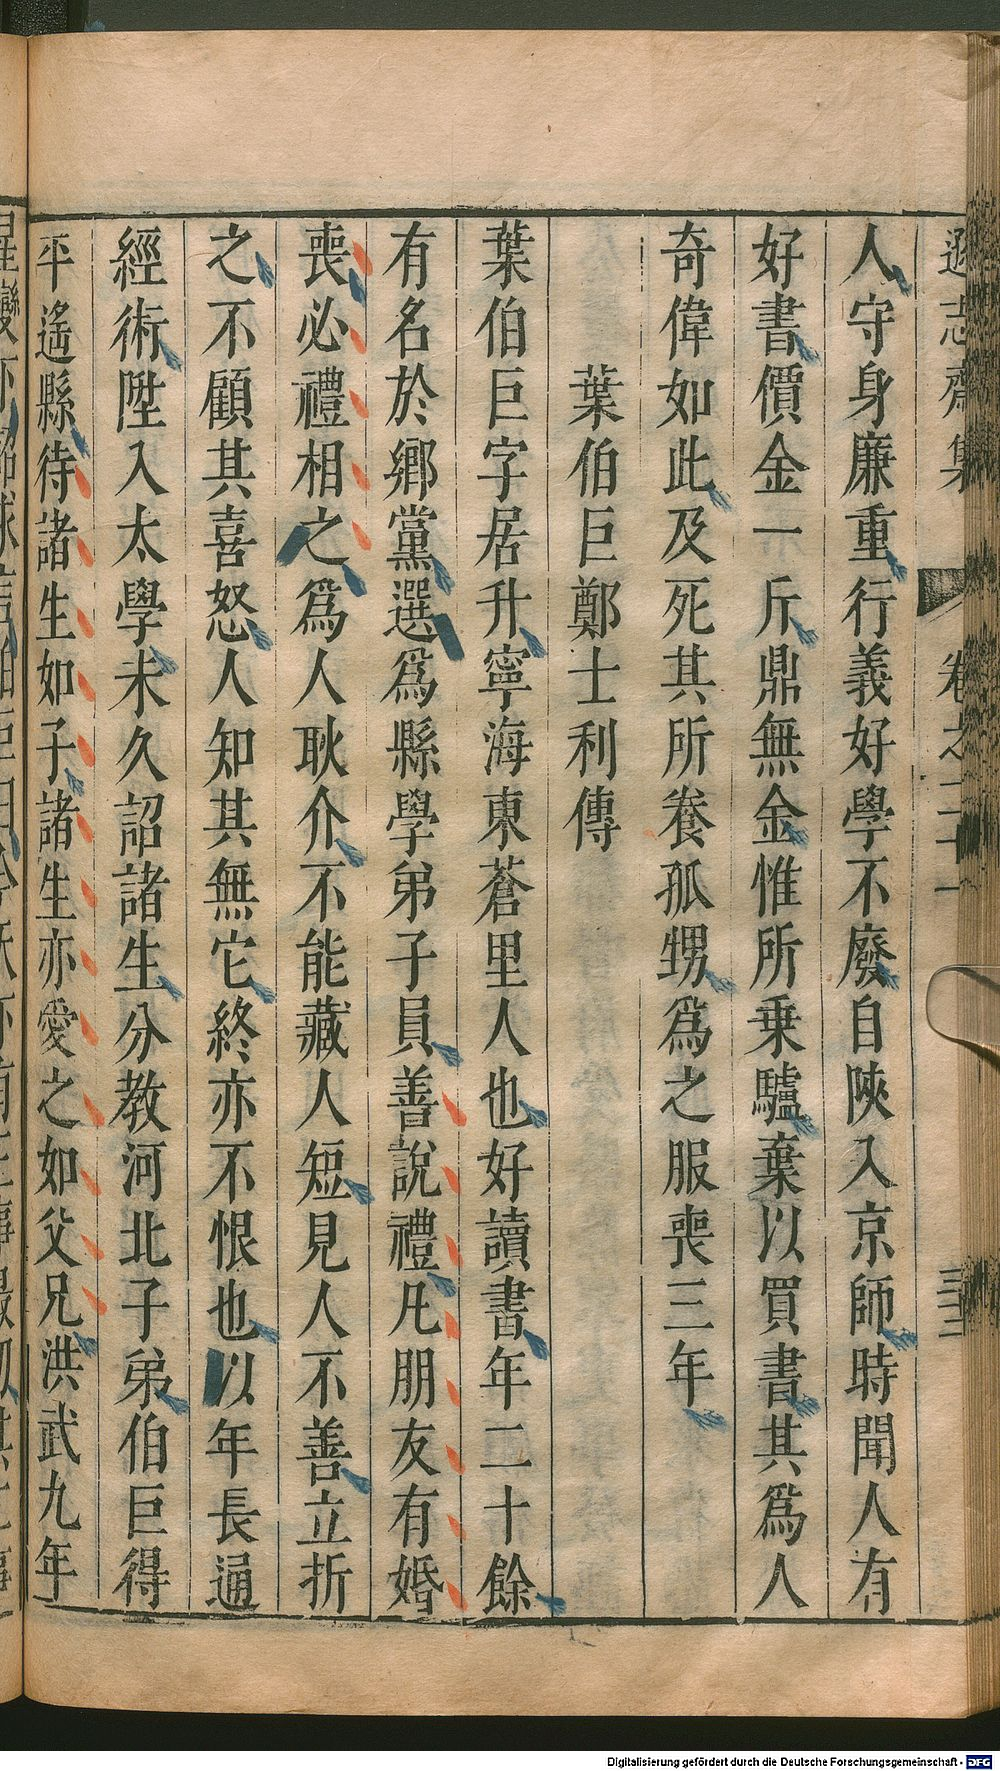 遜志齋集 卷之二十一 三十三
人守身廉重行義好學不廢自陜入京師時聞人有
好書價金一斤鼎無金惟所乗驢棄以買書其爲人
奇偉如此及死其所養孤甥爲之服喪三年
葉伯巨鄭士利傳
葉伯巨字居升寧海東蒼里人也好讀書年二十餘
有名於鄉黨選爲縣學弟子員善說禮凡朋友有婚
喪必禮相之爲人耿介不能藏人短見人不善立折
之不顧其喜怒人知其無它終亦不恨也以年長通
經術陞入太學未久詔諸生分教河北子弟伯巨得
平遙縣待諸生如子諸生亦愛之如父兄洪武九年
Digitalisierung gefördert durch die Deutsche Forschungsgemeinschaft - DFG